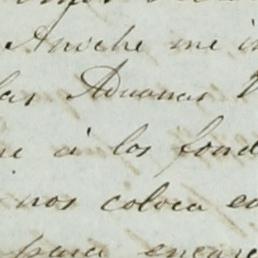 Anoche me i
las Aduanas
e á los fond
nos coloca en
para encar